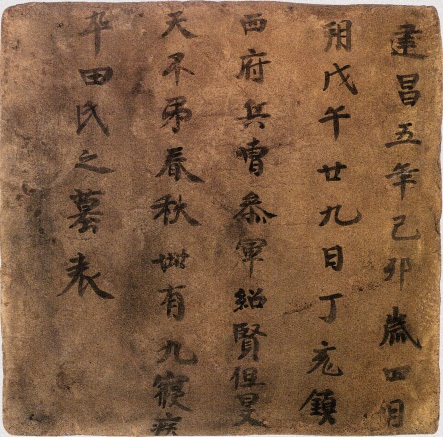 建昌五年己卯歲四月
朔戊午廿九日丁亥鎮
西府兵曹參軍紹賢但旻
天不弔春秋有九寢疾
卒田氏之墓表